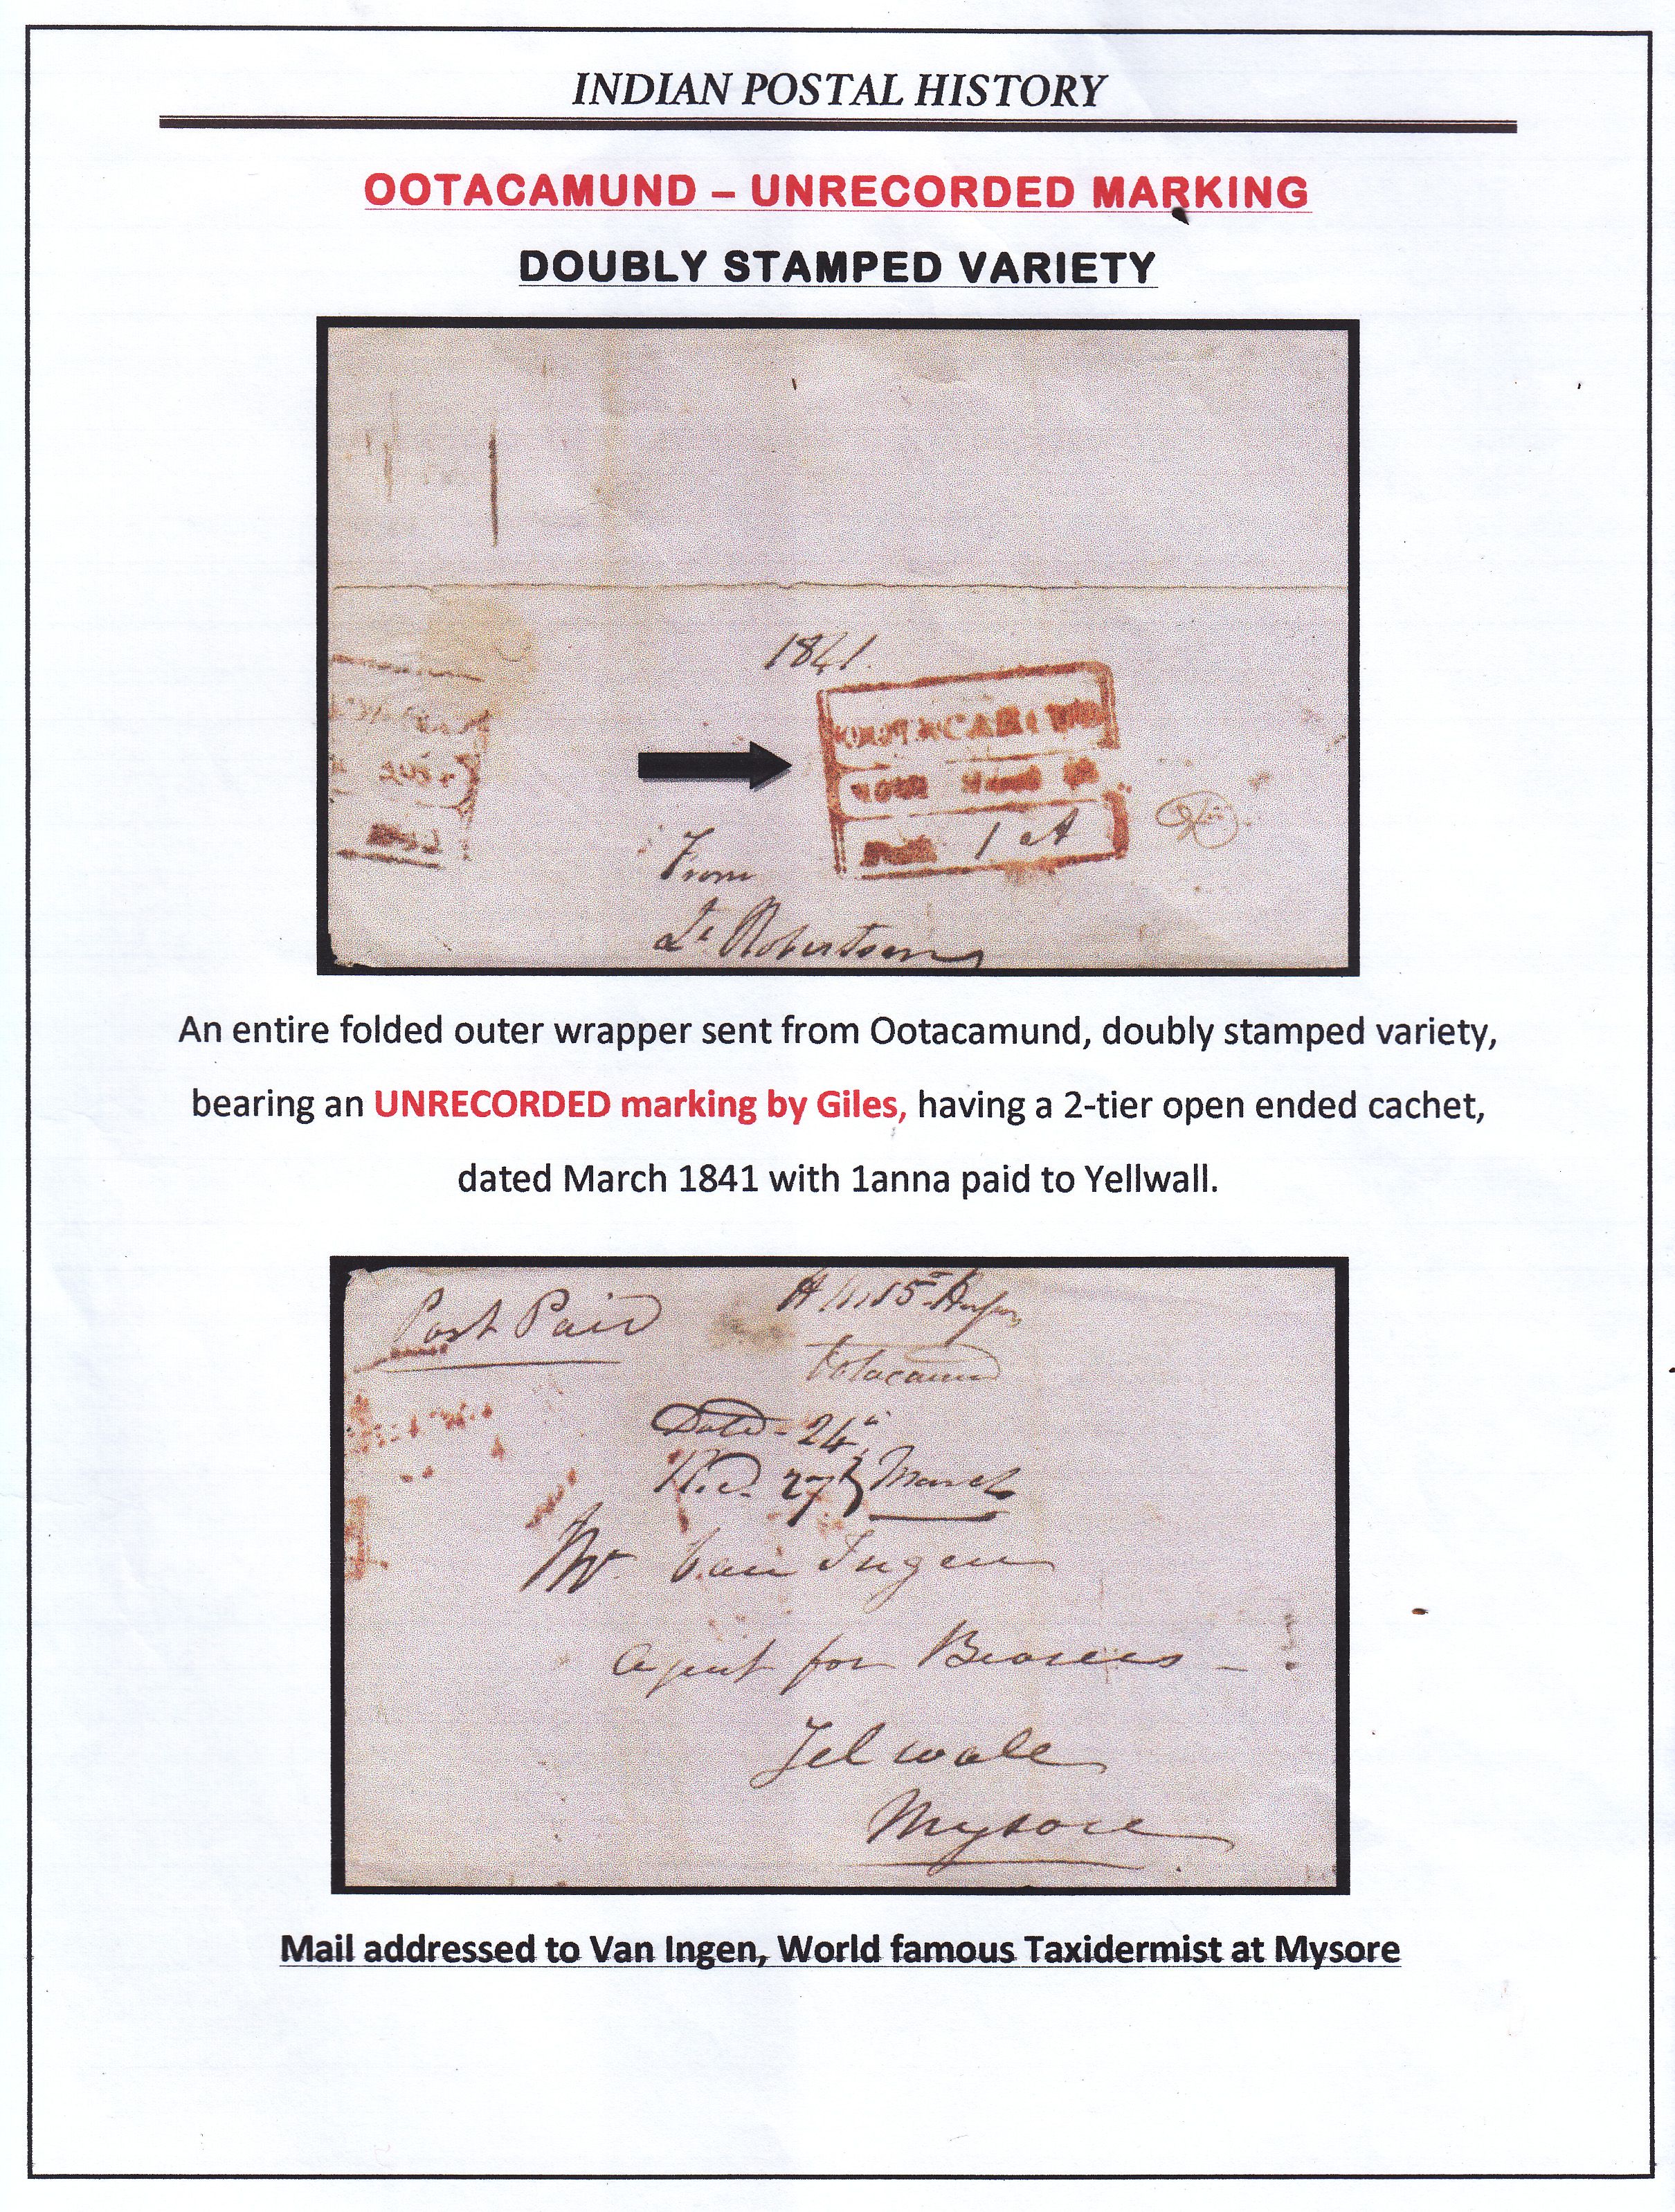 INDIAN POSTAL HISTORY
OOTACAMUND – UNRECORDED MARKING
DOUBLY STAMPED VARIETY
1841.
1 A
From
Lt Robertson
An entire folded outer wrapper sent from Ootacamund, doubly stamped variety,
bearing an UNRECORDED marking by Giles, having a 2-tier open ended cachet,
dated March 1841 with 1anna paid to Yellwall.
Post Paid
H M 15th
Ootacamund
Dated - 24
27 March
Mr Van Ingen
Agent for Bearers -
Yelwale
Mysore
Mail addressed to Van Ingen, World famous Taxidermist at Mysore